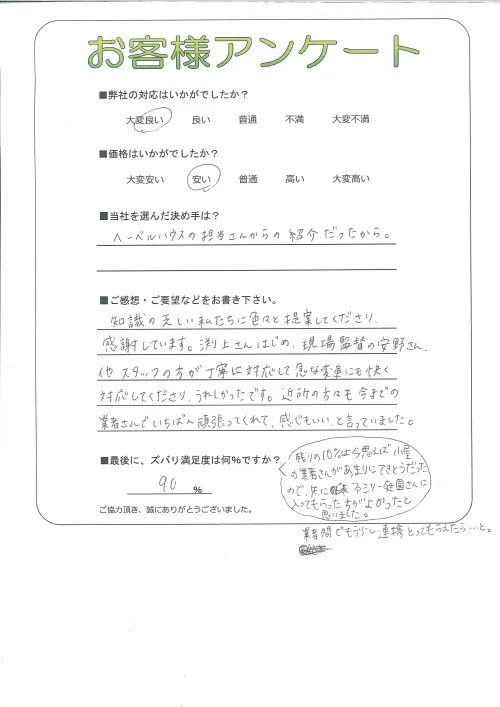 お客様アンケート
■弊社の対応はいかがでしたか？
大変良い 良い 普通 不満 大変不満
■価格はいかがでしたか？
大変安い 安い 普通 高い 大変高い
■当社を選んだ決め手は？
ヘーベルハウスの担当さんからの紹介だったから。
■ご感想・ご要望などをお書き下さい。
知識の乏しい私たちに色々と提案してくださり、
感謝しています。渕上さんはじめ、現場監督の安野さん、
他スタッフの方が丁寧に対応して急な変更にも快く
対応してくださり、うれしかったです。近所の方々も今までの
業者さんでいちばん頑張ってくれて、感じもいい、と言っていました。
■最後に、ズバリ満足度は何％ですか？
90 ％
残りの10%は今思えば小屋
の業者さんがあまりにてきとうだった
ので、先に ファミリー庭園さんに
入ってもらった方がよかったと
思いました。
業者間でもう少し連携とってもらえたら…と。
ご協力頂き、誠にありがとうございました。